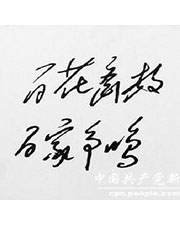 百花齐放
百家争鸣
中国共产党新
cpc.people.com.cn